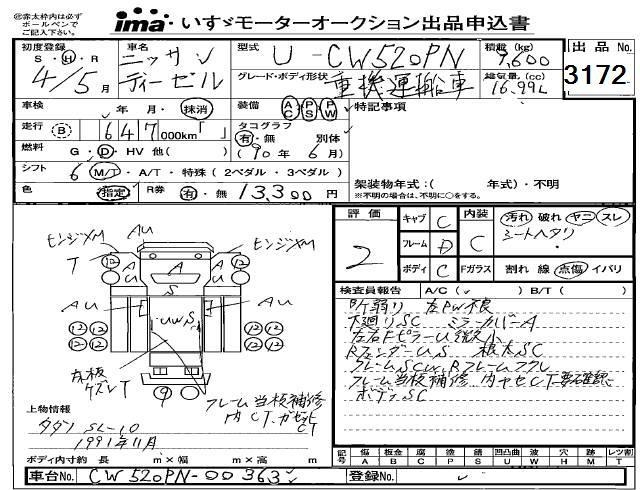 ㊟赤太枠内は必ず
ボールペンで
ご記入下さい。
ima・いすゞモーターオークション出品申込書
初度登録 車名 型式 U-CW520PN 積載(kg) 9,600 出品No.
S・H・R ニッサン グレード・ボディ形状 総気量(cc) 3172
4/5月 ディーゼル 重機運搬車 16.99L
車検 年 月・抹消 装備 AC PS PW 特記事項
走行 B 647 000km タコグラフ
有・無 別体
燃料 G・D・HV 他( ) (90年6月)
シフト 6 M/T・A/T・特殊(2ペダル・3ペダル)
色 指定 R券 有・無 13,300円
架装物年式:( 年式)・不明
※不明の場合は、不明に○をする。
評価 キャブ C 内装 汚れ 破れ ヤニ スレ
2 フレーム D C シートヘタリ
ボディ C Fガラス 割れ 線 点傷 イバリ
検査員報告 A/C( ) B/T( )
下廻りSC ミラーカバーA
RフェンダーUS 根太SC
フレーム当板補修 内ヤセCT要確認
ボデーSC
ヒンジメM AU ヒンジメM
T 12 12
AU A AU
S
AU UWS AU
12 12 12 12
12 12 12 12
床板
ズレT
9
フレーム当板補修
内CT
上物情報
タダノ SL-10
1991年11月
ボディ内寸約 長 m×幅 m×高 m
記号 傷 板金 腐 塗 錆 凹凸曲 波 穴 跡 レツ割
A B C P S U W H M T
車台No. CW520PN-00363 登録No.